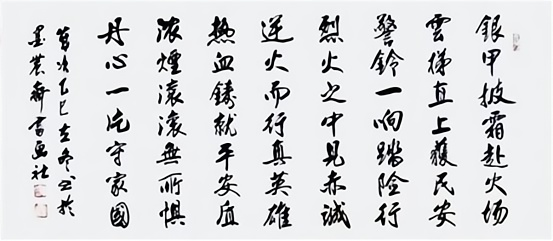 银甲披霜赴火场
雲梯直上護民安
警铃一响踏险行
烈火之中见赤诚
逆火而行真英雄
热血铸就平安盾
浓煙滚滚無所惧
丹心一片守家國
岁次乙巳立冬书於
墨农斋書画社